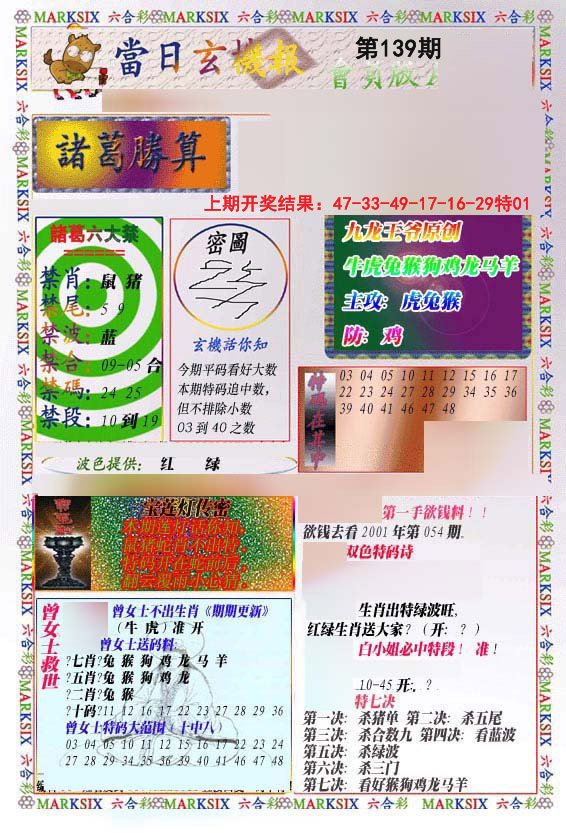 MARKSIX 六合彩 MARKSIX 六合彩 MARKSIX 六合彩 MARKSIX 六合彩
當日玄機報
第139期
諸葛勝算
上期开奖结果：47-33-49-17-16-29特01
諸葛六大禁
禁肖：鼠 猪
禁尾：5 9
禁波：蓝
禁合：09-05 合
禁碼：24 25
禁段：10 到 19
密圖
玄機話你知
今期平码看好大数
本期特码追中数，
但不排除小数
03 到 40 之数
九龙王爷原创
牛虎兔猴狗鸡龙马羊
主攻：虎兔猴
防：鸡
特碼在其中
03 04 05 10 11 12 15 16 17
22 23 24 27 28 29 34 35 36
39 40 41 46 47 48
波色提供：红 绿
宝莲灯传密
曾女士救世
曾女士不出生肖《期期更新》
（牛 虎）准 开
曾女士送码料
?七肖?兔 猴 狗 鸡 龙 马 羊
?五肖?兔 猴 狗 鸡 龙
?二肖?兔 猴
?十码?11 12 16 17 22 23 27 28 29 36
曾女士特码大范围（十中八）
03 04 05 10 11 12 15 16 17 22 23 24
27 28 29 34 35 36 39 40 41 46 47 48
第一手欲钱料！！
欲钱去看 2001 年第 054 期。
双色特码诗
生肖出特绿波旺，
红绿生肖送大家？（开：？）
白小姐必中特段！ 准！
10-45 开：？
特七决
第一决：杀猪单 第二决：杀五尾
第三决：杀合数九 第四决：看蓝波
第五决：杀绿波
第六决：杀三门
第七决：看好猴狗鸡龙马羊
MARKSIX 六合彩 MARKSIX 六合彩 MARKSIX 六合彩 MARKSIX 六合彩